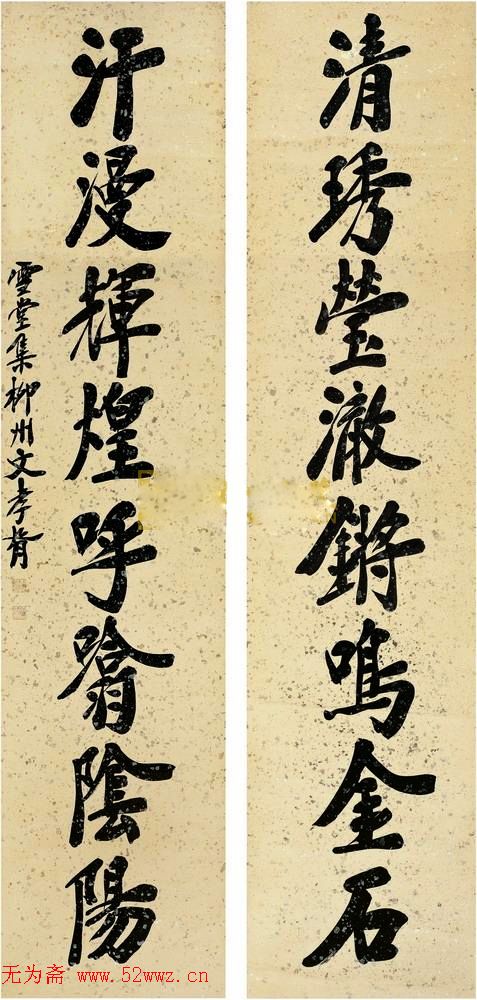 清琇瑩澈鏘鳴金石
汗漫輝煌呼噏陰陽
雪堂集柳州文孝胥
无为斋 www.52wwz.cn